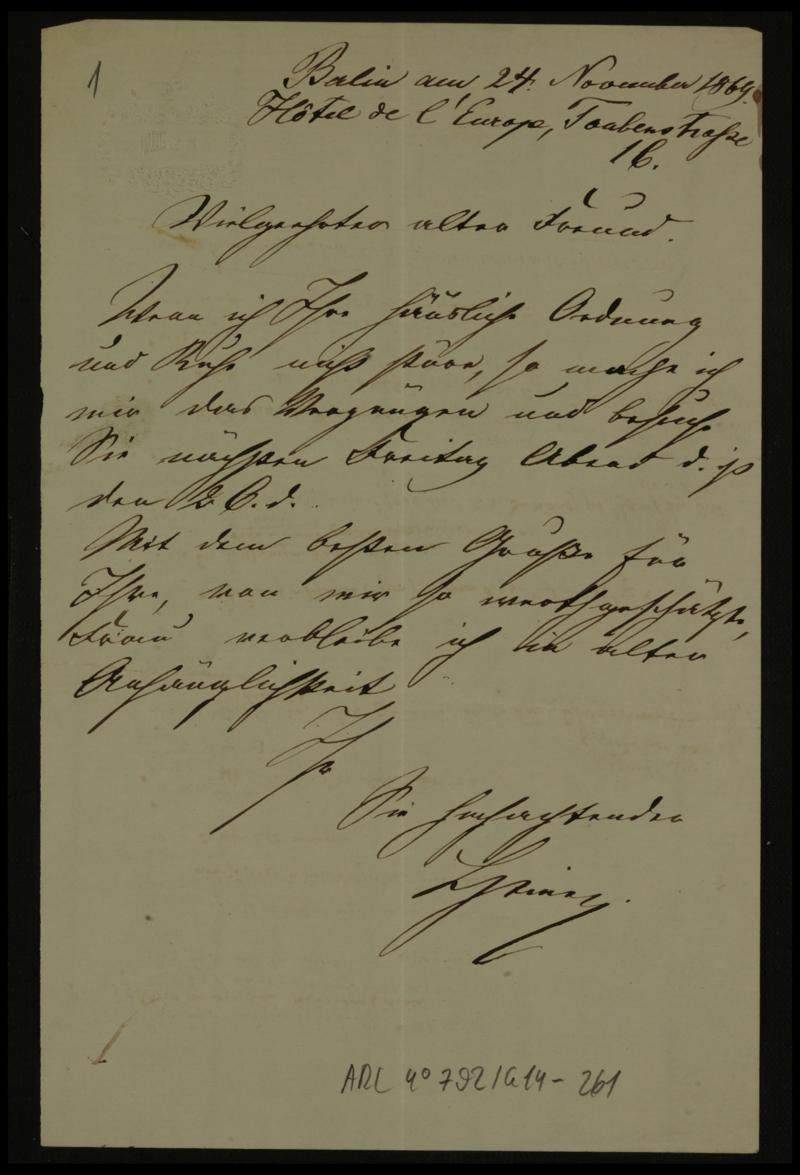 1
Berlin am 24. November 1869.
Hôtel de l'Europe, Taubenstraße
16.
Vielgeehrter alter Freund.
Wenn ich Ihre häusliche Ordnung
und Ruhe nicht störe, so mache ich
mir das Vergnügen und besuche
Sie nächsten Freitag Abend d. ist
den 26. d.
Mit dem besten Gruße für
Ihre, von mir so werthgeschätzte,
Frau verbleibe ich in alter
Anhänglichkeit
Ihr
Sie hochachtender
ARC 4° 792/G14-261